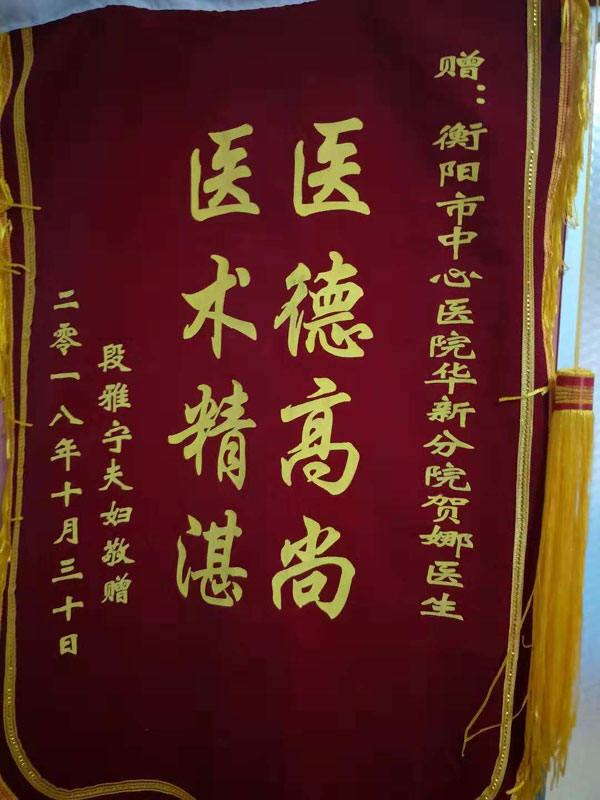 赠：衡阳市中心医院华新分院贺娜医生
医德高尚
医术精湛
段雅宁夫妇敬赠
二零一八年十月三十日